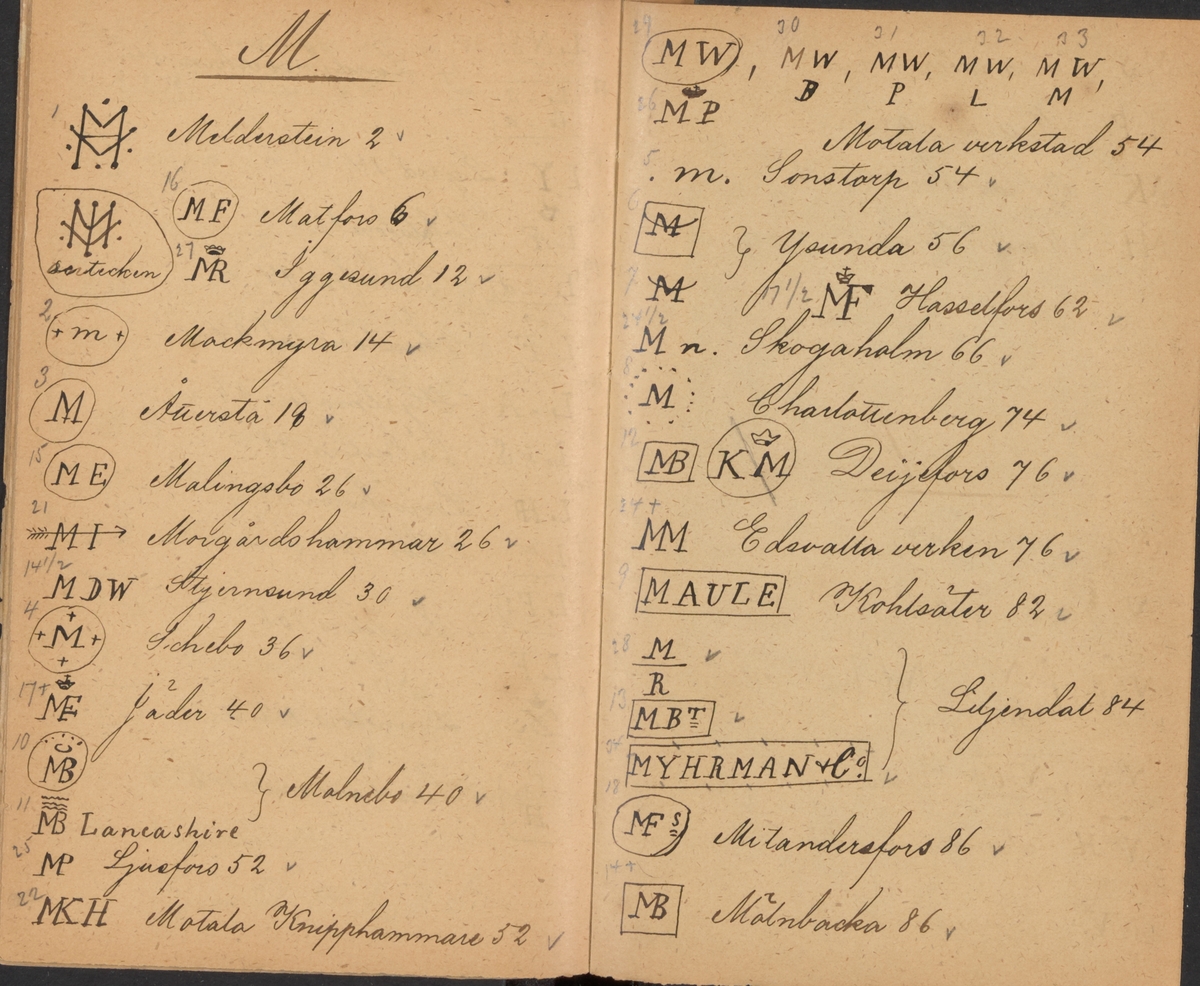 M.
1 M Melderstein 2
16 MF Matfors 6
27 MR Iggesund 12
2 + m + Mackmyra 14
3 M Åverstá 18
15 ME Malingsbo 26
21 MI Morgårdshammar 26
14 1/2 MDW Stjernsund 30
4 + M + Schebo 36
17+ ME Jäder 40
10 MB
11 MB Lancashire
} Malnebo 40
25 MP Ljusfors 52
22 MKH Motala Knipphammare 52
29 MW, 30 MW B, 31 MW, P 32 MW, L 33 MW, M
26 MP
Motala verkstad 54
5. . m. Sonstorp 54
6 M
} Ysunda 56
7 M
17 1/2 MF Hasselfors 62
24 1/2 M n. Skogaholm 66
8 M Charlottenberg 74
12 MB KM Deijefors 76
24++ MM Edsvalla verken 76
9 MAULE Kohlsäter 82
28 M
R
13 MBT
} Liljendal 84
34 MYHRMAN & Co.
18 MFS Mitandersfors 86
MB Mölnbacka 86